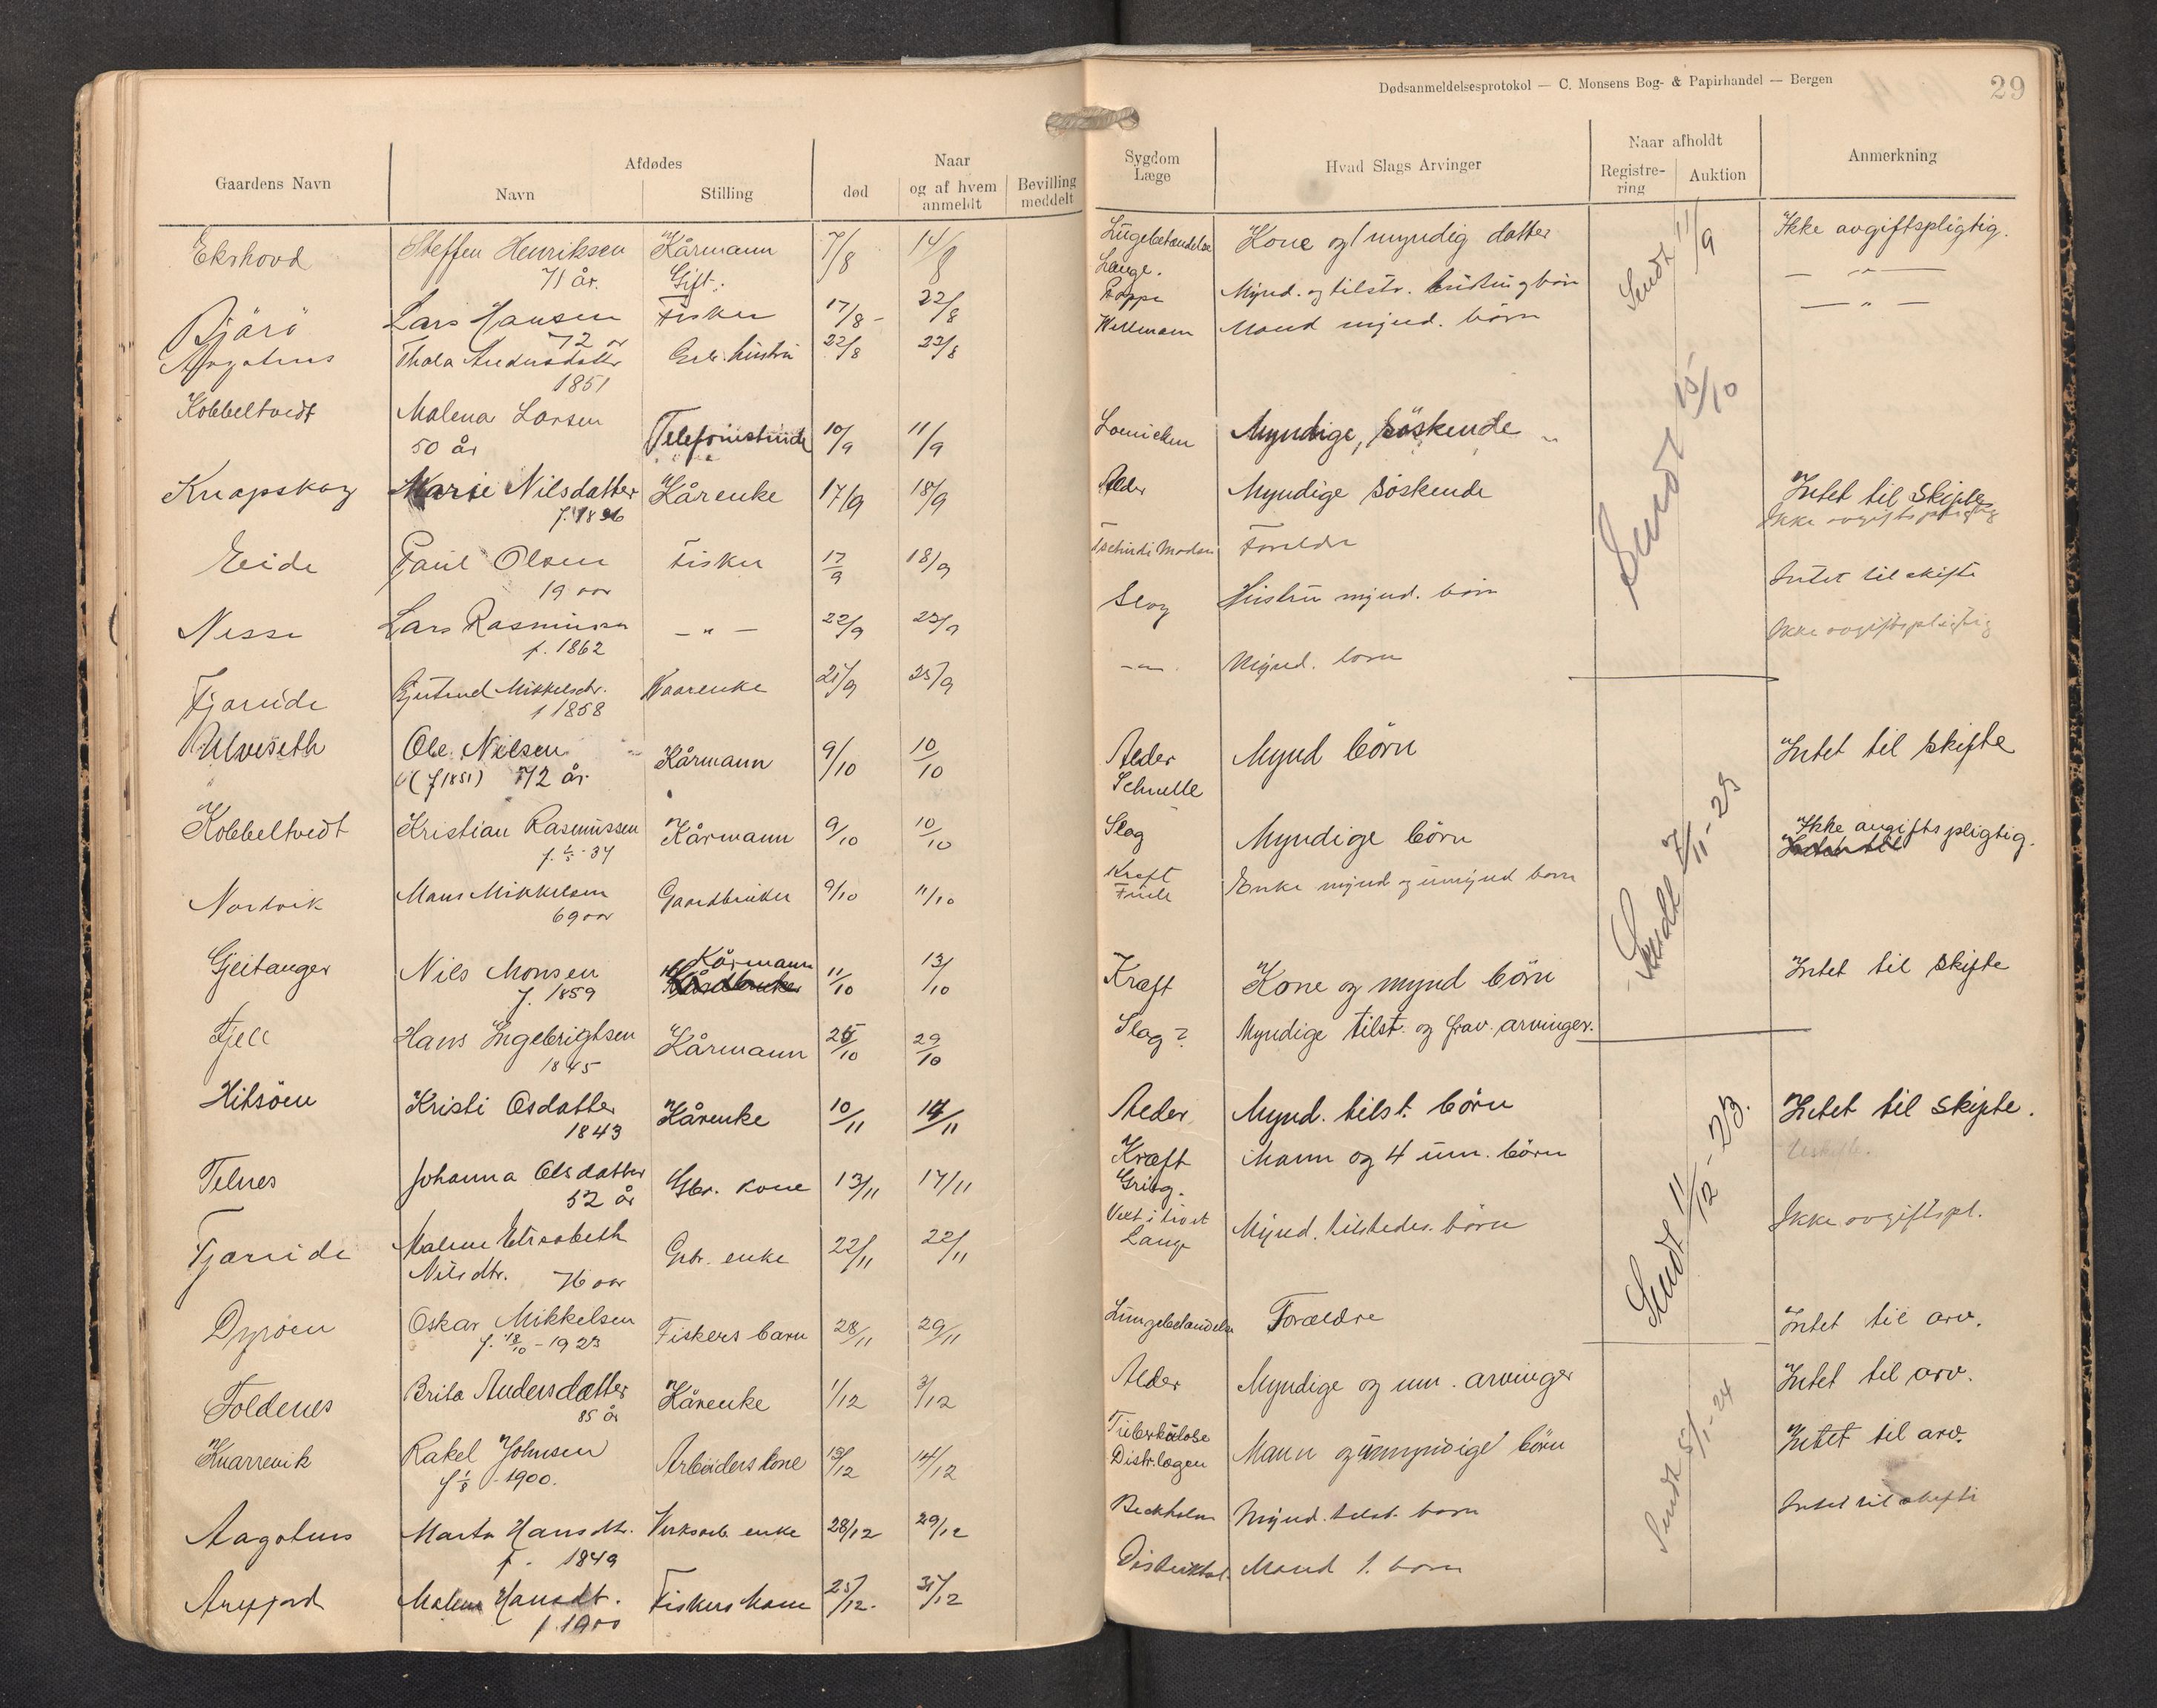 Dødsanmeldelsesprotokol — C. Monsens Bog- & Papirhandel — Bergen
29
Gaardens Navn
Afdødes
Navn
Stilling
Naar
død
og af hvem anmeldt
Bevilling meddelt
Sygdom Læge
Hvad Slags Arvinger
Naar afholdt
Registrering
Auktion
Anmerkning
Ekshovd Steffen Henriksen Kårmann 7/8 14/8 Kone og 1 myndig datter Sendt 11/9 Ikke avgiftspligtig.
71 år. Gift. Lange.
Bjärö Lars Hansen Fisker 17/8 - 22/8 Mynd. og tilstr. — " —
72 år
Andersdatter 22/8 23/8 Mand mynd. börn — " —
1851
Kobbeltvedt Malena Larsen Telefonistinde 10/9 11/9 Myndige, söskende Sendt 15/10
50 år
Knapskog Marie Nilsdatter Kårenke 17/9 18/9 Alder Myndige söskende Intet til Skifte
f. 1836 Ikke avgiftspligtig
Eide Paul Olsen Fisker 17/9 18/9 Foreldr Intet til skifte
19 aar
Nesse Lars Rasmussen — " — 22/9 23/9 Slag Hustru mynd. börn Ikke avgiftspligtig
f. 1862
Fjæreide Gjertrud Mikkelsdr. Kaarenke 21/9 25/9 — " — Mynd. born
f 1858
Ulveseth Ole Nilsen Kårmann 9/10 10/10 Alder Mynd börn Intet til skifte
(f 1851) 72 år Schnelle
Kobbeltvedt Kristian Rasmussen Kårmann 9/10 10/10 Slag Myndige börn Sendt 7/11-23 Ikke avgiftspligtig.
f. 1/5 - 34
Nordvik Mons Mikkelsen Gaardbruker 9/10 11/10 Kreft Enke mynd og umynd born
69 aar
Gjeitanger Nils Monsen Kårmann 11/10 13/10 Kræft Kone og mynd börn Intet til skifte
f. 1859
Fjell Hans Ingebrigtsen Kårmann 25/10 29/10 Slag? Myndige tilst. og frav. arvinger.
1845
Hitsöen Kristi Osdatter Kårenke 10/11 14/11 Alder Mynd. tilst. börn Intet til skifte.
1843
Telnes Johanna Olsdatter Gbr. kone 13/11 17/11 Kræft Mann og 4 um. börn
52 år Grieg. Sendt 11/12-23.
Fjæreide Malene Elisabeth Gbr. enke 22/11 22/11 Mynd. tilstedev. börn Ikke avgiftspl.
Nilsdtr. 76 aar Lange
Dyröen Oskar Mikkelsen Fiskers barn 28/11 29/11 Lungebetændelse Forældre Intet til arv.
f. 18/10 - 1923
Foldenes Brita Andersdatter Kårenke 1/12 3/12 Alder Myndige og um. arvinger Intet til arv.
85 år
Knarrevik Rakel Johnsen Arbeiders kone 13/12 14/12 Tuberkulose Mann og umyndige börn Sendt 5/1-24 Intet til arv.
f 1/8 - 1900. Distr.lægen
Aagotnes Marta Hansdtr. enke 28/12 29/12 Mynd. tilst. born Intet til skifte
f. 1849
Arefjord Malene Hansdt. Fiskers kone 25/12 - 31/12 Distriktsl. Mand 1. born
f. 1900